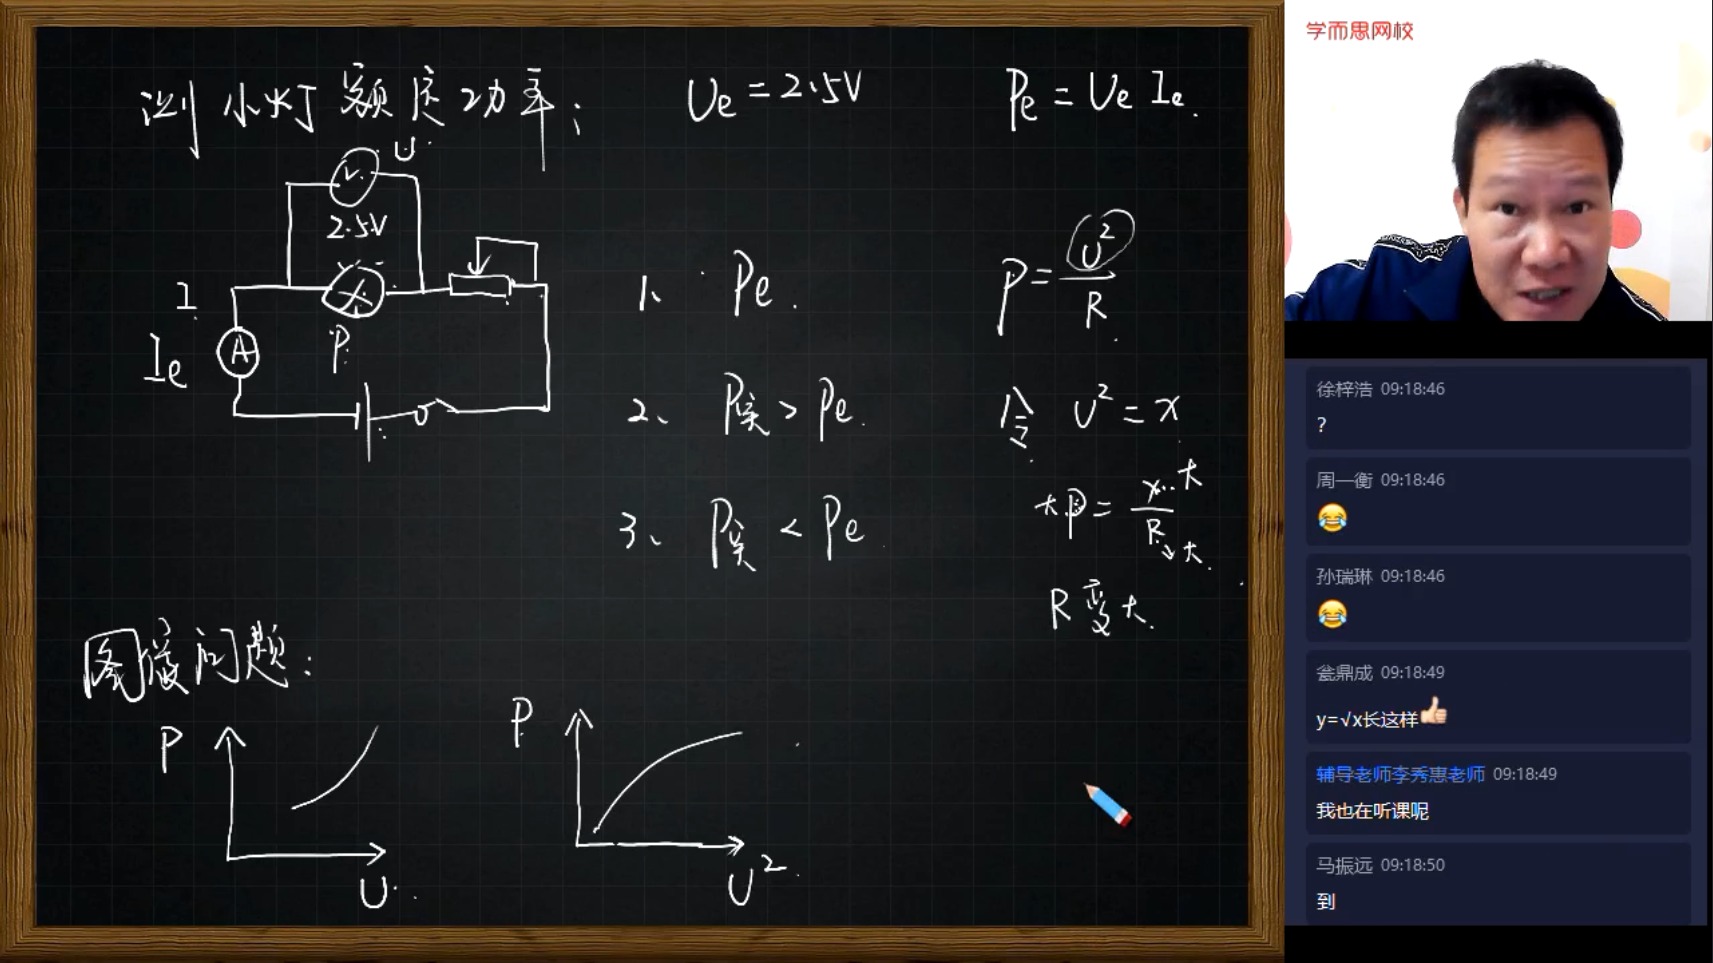 测小灯额定功率；
Ue = 2.5V
Pe = Ue Ie.
V
U
2.5V
I
Ie
A
P
1、 Pe.
2、 P实 > Pe.
3、 P实 < Pe
P = U²/R
令 U² = x
大 P = x/R 大 大
R 变大.
图像问题：
P
U
P
U²
学而思网校
徐梓浩 09:18:46
?
周一衡 09:18:46
😂
孙瑞琳 09:18:46
😂
瓮鼎成 09:18:49
y=√x长这样👍
辅导老师李秀惠老师 09:18:49
我也在听课呢
马振远 09:18:50
到